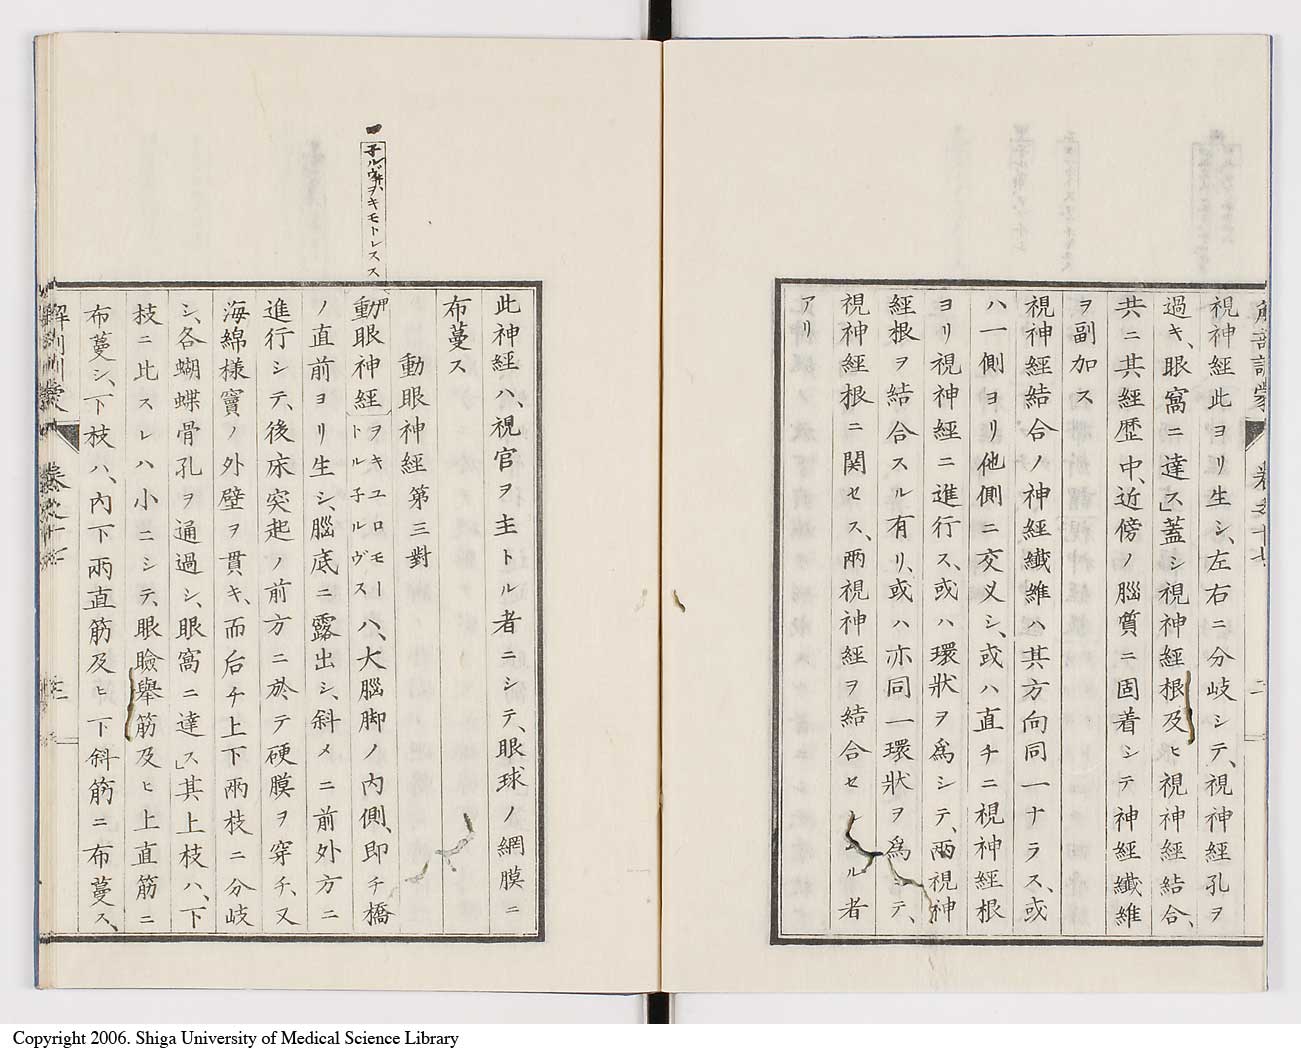 視神經此ヨリ生シ、左右ニ分岐シテ、視神經孔ヲ
過キ、眼窩ニ達ス」蓋シ視神經根及ヒ視神經結合、
共ニ其經歷中、近傍ノ腦質ニ固着シテ神經纖維
ヲ副加ス
視神經結合ノ神經纖維ハ其方向同一ナラス、或
ハ一側ヨリ他側ニ交叉シ、或ハ直チニ視神經根
ヨリ視神經ニ進行ス、或ハ環狀ヲ爲シテ、兩視神
經根ヲ結合スル有リ、或ハ亦同一環狀ヲ爲シテ、
視神經根ニ関セス、兩視神經ヲ結合セシムル者
アリ
解剖訓蒙 卷之十七 二
此神經ハ、視官ヲ主トル者ニシテ、眼球ノ網膜ニ
布蔓ス
動眼神經第三對
動眼神經ヲキユロモートル子ルヴスハ、大腦脚ノ內側、即チ橋
ノ直前ヨリ生シ、腦底ニ露出シ、斜メニ前外方ニ
進行シテ、後床突起ノ前方ニ於テ硬膜ヲ穿チ、又
海綿樣竇ノ外壁ヲ貫キ、而后チ上下兩枝ニ分岐
シ、各蝴蝶骨孔ヲ通過シ、眼窩ニ達ス」其上枝ハ、下
枝ニ比スレハ小ニシテ、眼瞼舉筋及ヒ上直筋ニ
布蔓シ、下枝ハ、內下兩直筋及ヒ下斜筋ニ布蔓ス、
解剖訓蒙 卷之十七
Copyright 2006. Shiga University of Medical Science Library